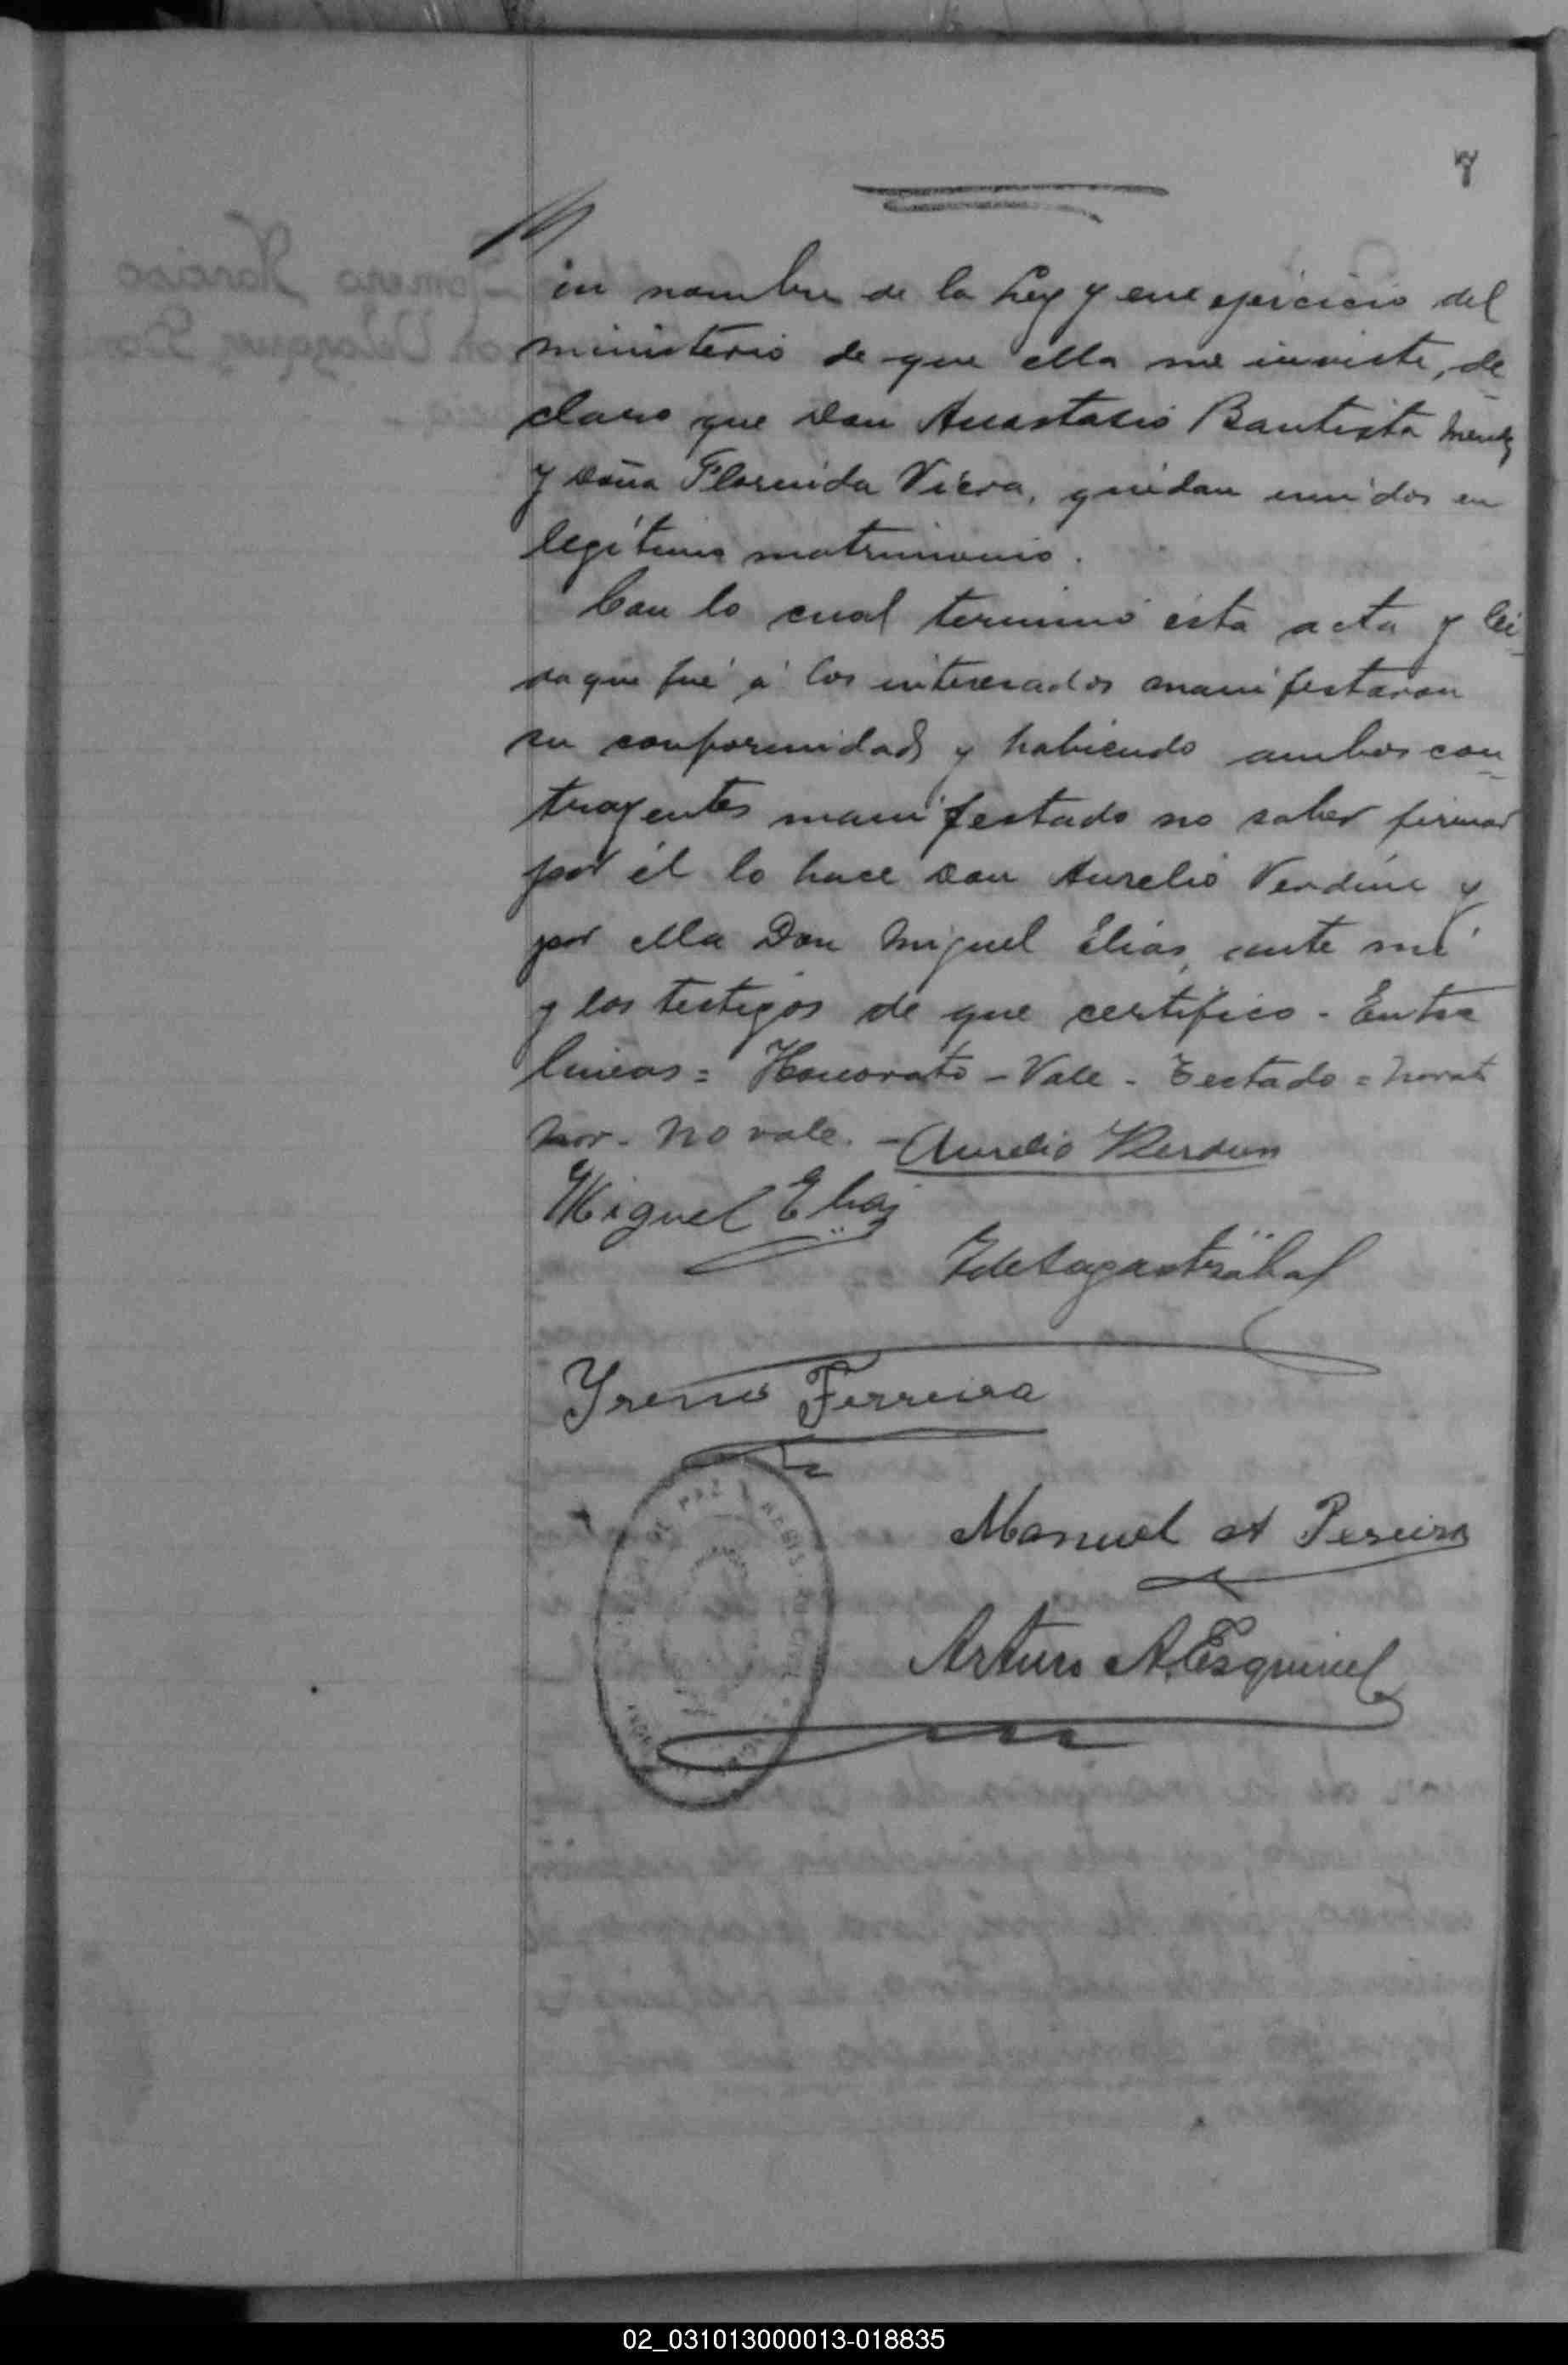 7
en nombre de la Ley y en ejercicio del
ministerio de que ella me inviste, de-
claro que Don Anastasio Bautista
y Doña Florenida Viera, quedan unidos en
legítimo matrimonio.
Con lo cual terminó esta acta y lei-
da que fué á los interesados manifestaron
su conformidad y habiendo ambos con-
trayentes manifestado no saber firmar
por él lo hace Don Aurelio Verdún y
por ella Don Miguel Elias, ante mí
y los testigos de que certifico - Entre
lineas = Honorato - Vale - Testado =
no vale. - Aurelio Verdun
Miguel Elias
Yreneo Ferreira
Manuel A Pereira
Arturo A. Esquivel
DE PAZ Y REGIS
02_031013000013-018835